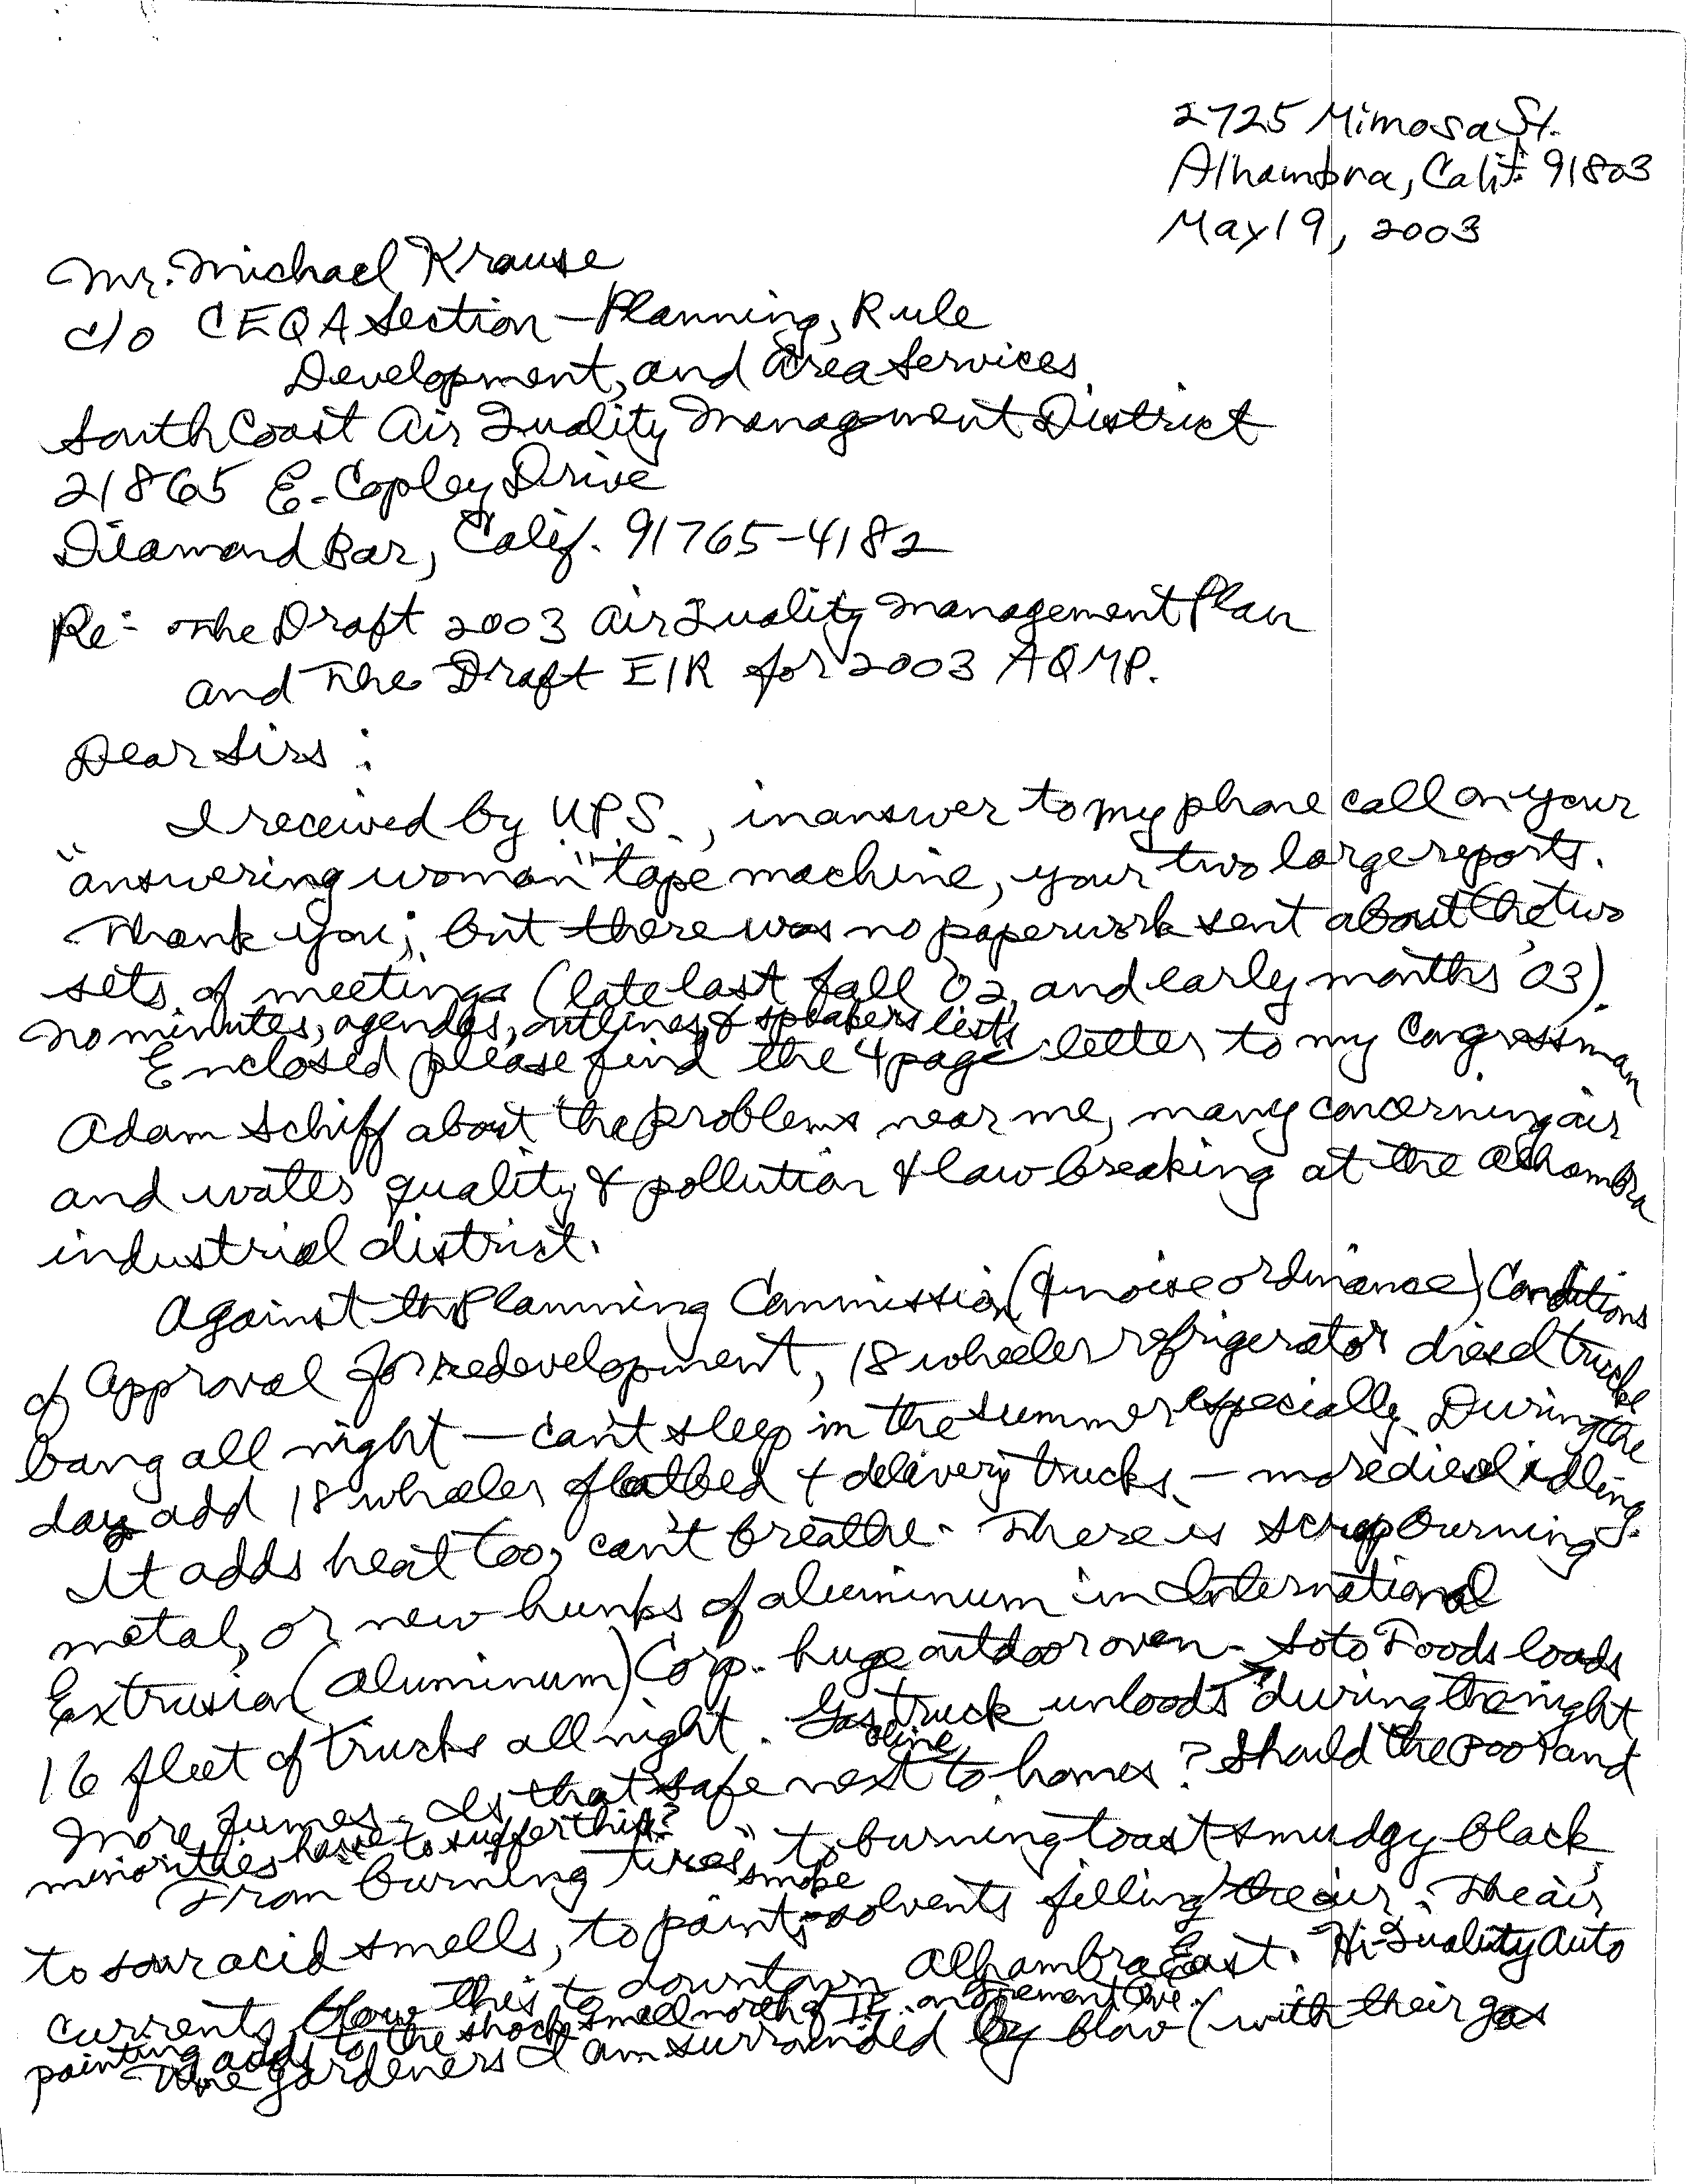 2725 Mimosa St.
Alhambra, Calif. 91803
May 19, 2003
Mr. Michael Krause
c/o CEQA Section - Planning, Rule
Development, and Area Services
South Coast Air Quality Management District
21865 E. Copley Drive
Diamond Bar, Calif. 91765-4182
Re: The Draft 2003 Air Quality Management Plan
and The Draft EIR for 2003 AQMP.
Dear Sirs:
I received by U.P.S., in answer to my phone call on your
"answering woman" tape machine, your two large reports.
Thank you; but there was no paperwork sent about the two
sets of meetings (late last fall '02, and early months '03).
no minutes, agendas, outlines, & speakers lists
Enclosed please find the 4 page letter to my Congressman
Adam Schiff about the problems near me, many concerning air
and water quality & pollution & law breaking at the Alhambra
industrial district.
Against the Planning Commission (& noise ordinance) Conditions
of Approval for redevelopment, 18 wheeler refrigerator diesel trucks
bang all night - can't sleep in the summer especially. During the
day add 18 wheeler flatbed & delivery trucks - more diesel idling.
It adds heat too, can't breathe. There is scrap burning
metal, or new hunks of aluminum in International
Extrusion (Aluminum) Corp. huge outdoor oven - Soto Foods loads
16 fleet of trucks all night. Gasoline truck unloads during the night
More fumes - Is that safe next to homes? Should the poor and
minorities have to suffer this?
From "burning tires" smoke to burning toast smudgy black,
to sour acid smells, to paint-solvents filling the air. The air
currents blow this to downtown Alhambra East. Hi-Quality Auto
painting adds to the shock smell north of on Fremont Ave.
The gardeners I am surrounded by blow (with their gas